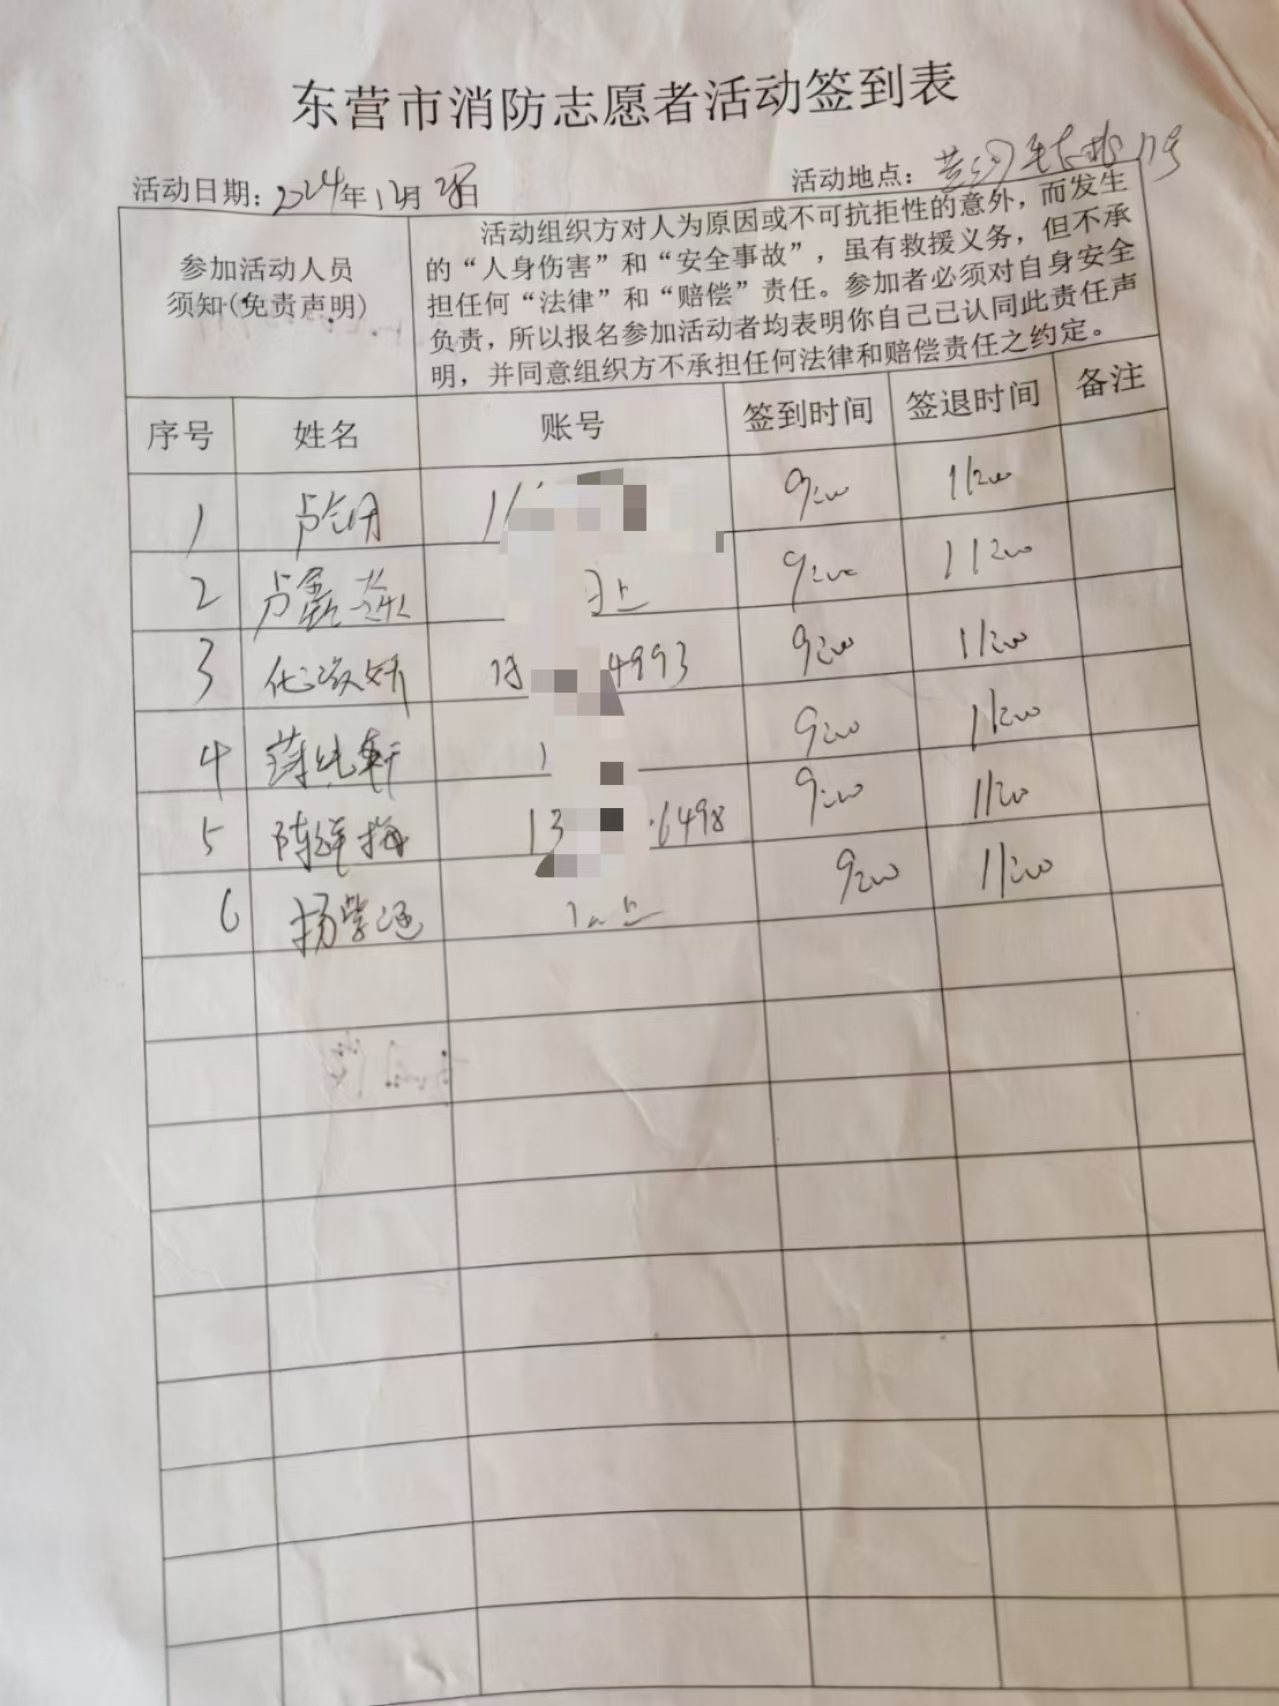 东营市消防志愿者活动签到表
活动日期：2024年12月28日 活动地点：
参加活动人员
须知(免责声明)
活动组织方对人为原因或不可抗拒性的意外，而发生
的“人身伤害”和“安全事故”，虽有救援义务，但不承
担任何“法律”和“赔偿”责任。参加者必须对自身安全
负责，所以报名参加活动者均表明你自己已认同此责任声
明，并同意组织方不承担任何法律和赔偿责任之约定。
序号 姓名 账号 签到时间 签退时间 备注
1 9:00 11:00
2 卢鑫 9:00 11:00
3 4993 9:00 11:00
4 9:00 11:00
5 陈 梅 13 6498 9:00 11:00
6 杨 9:00 11:00